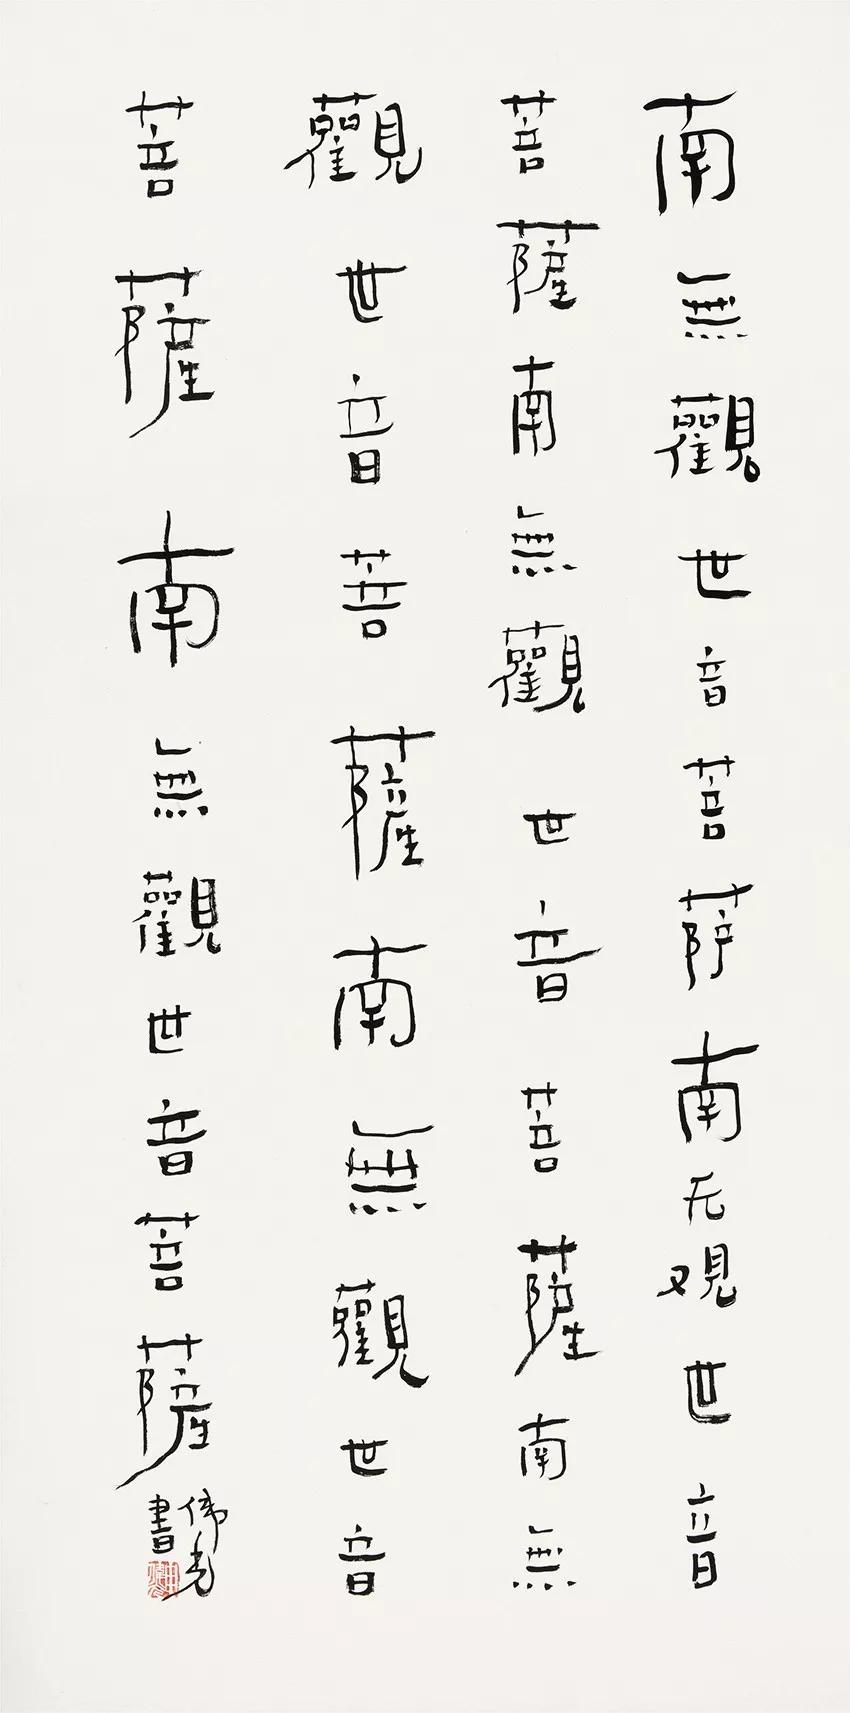 南無觀世音菩萨南无观世音
菩薩南無觀世音菩薩南無
觀世音菩薩南無觀世音
菩薩南無觀世音菩薩
伟光
書